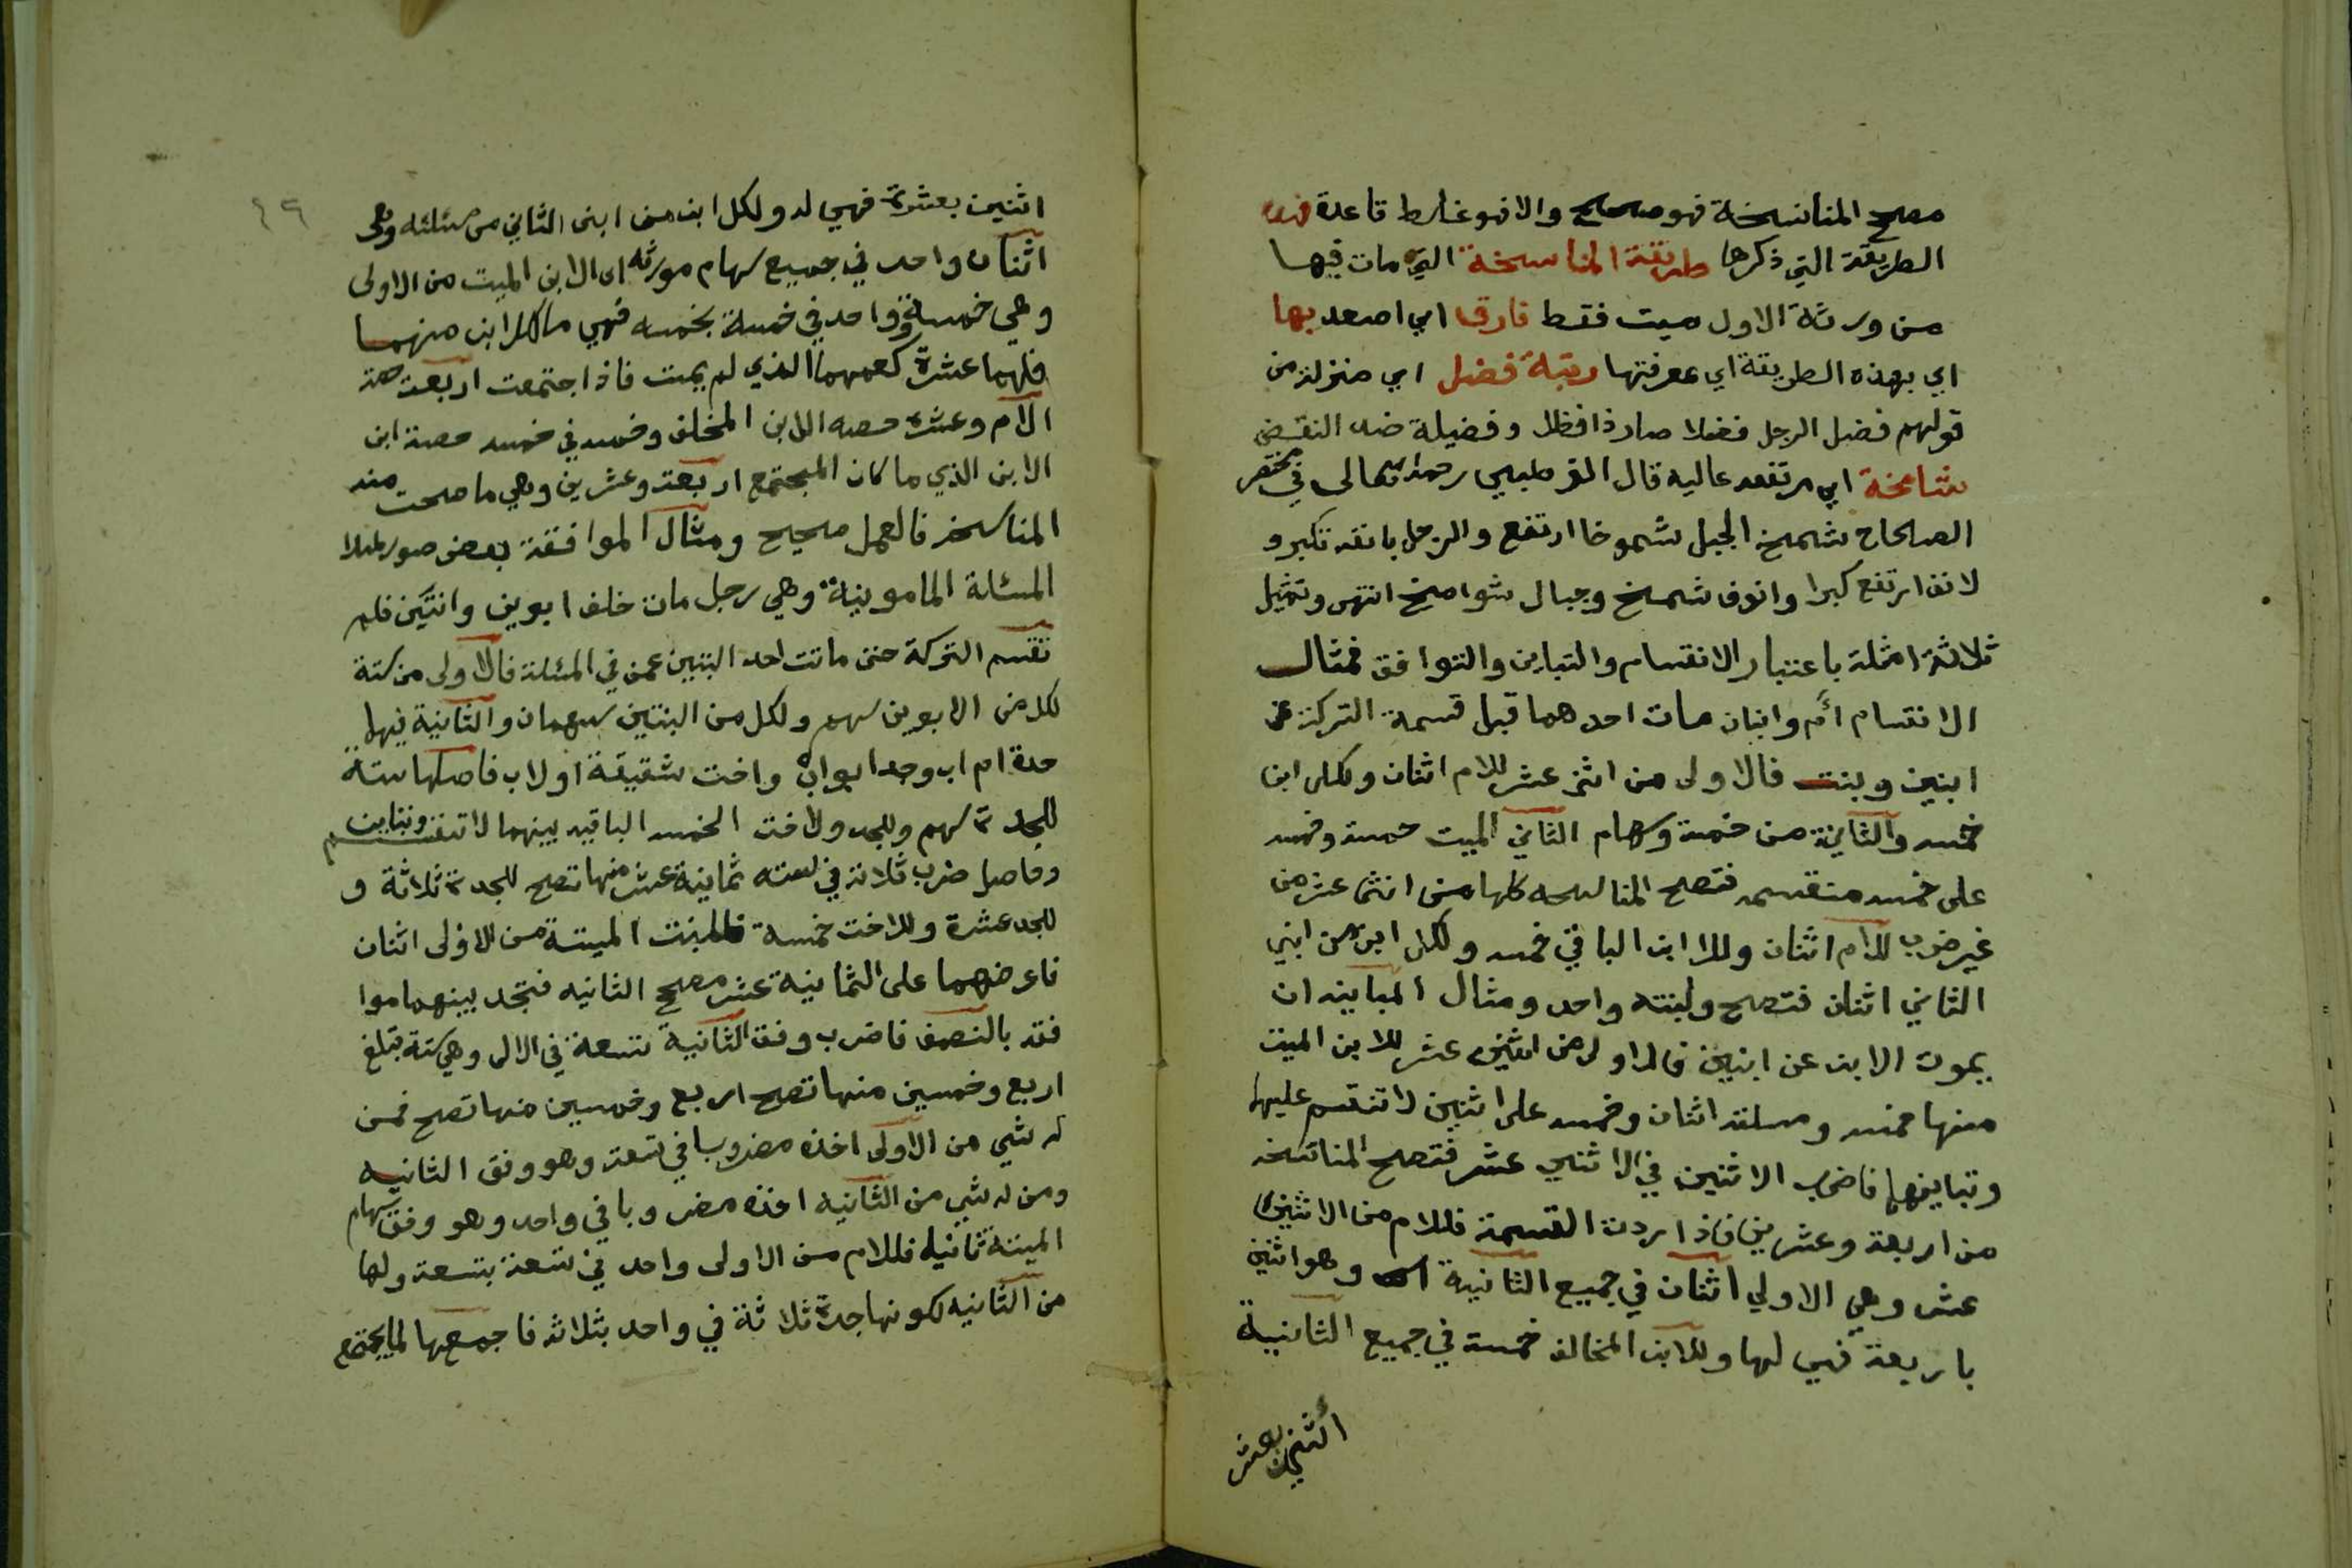 مصح المناسخة فهو صحيح والا فهو غلط قاعدة فهذه
الطريقة التي ذكرها طريقة المناسخة التي مات فيها
من ورثة الاول ميت فقط فارق اي اصعد بها
اي بهذه الطريقة اي بمعرفتها رتبة فضل اي منزلة من
قولهم فضل الرجل فضلا صار ذا فضل وفضيلة ضد النقص
شامخة اي مرتفعه عاليه قال القرطبي رحمه الله تعالى في مختصر
الصحاح شمخ الجبل شموخا ارتفع والرجل بانفه تكبر و
لانف ارتفع كبرا وانوف شمخ وجبال شوامخ انتهى وتمثيل
ثلاثة امثلة باعتبار الانقسام والتباين والتوافق فمثال
الانقسام أم وابنان مات احدهما قبل قسمة التركة عن
ابنين وبنت فالاولى من اثنى عشر للام اثنان ولكل ابن
خمسه والثانية من خمسة وسهام الثاني الميت خمسة وخمسه
على خمسه منقسمه فتصح المناسخه كلها من اثنى عشر من
غير ضرب للام اثنان وللابن الباقي خمسه ولكل ابن من ابني
الثاني اثنان فتصح ولبنته واحد ومثال المباينه ان
يموت الابن عن ابنين فالاولى من اثنى عشر للابن الميت
منها خمسه ومسئلته اثنان وخمسه على اثنين لا تنقسم عليها
وتباينها فاضرب الاثنين في الاثني عشر فتصح المناسخه
من اربعة وعشرين فاذا اردت القسمة فللام من الاثنى
عشر وهي الاولي اثنان في جميع الثانية وهو اثنين
باربعة فهي لها وللابن المخالف خمسة في جميع الثانية
اثنين بعشر
٤٩
اثنين بعشرة فهي له ولكل ابن من ابنى الثاني من مسئلته وهى
اثنان واحد في جميع سهام مورثه اى الابن الميت من الاولى
وهي خمسة وواحد في خمسة بخمسه فهي ما لكل ابن منهما
فلهما عشرة كعمهما الذي لم يمت فاذا اجتمعت اربعة حصة
الام وعشرة حصه الابن المخلف وخمسه في خمسه حصة ابن
الابن الذي مات كان المجتمع اربعة وعشرين وهي ما صحت منه
المناسخه فالعمل صحيح ومثال الموافقة بعض صور
المسئلة المامونية وهي رجل مات خلف ابوين وابنتين فلم
تقسم التركة حتى ماتت احد البنتين عمن في المسئلة فالاولى من ستة
لكل من الابوين سهم ولكل من البنتين سهمان والثانية فيها
جدة ام اب وجد ابو اب واخت شقيقة او لاب فاصلها ستة
للجدة سهم وللجد ولاخت الخمسه الباقيه بينهما لا تنقسم وتباين
وحاصل ضرب ثلاثة في ستة ثمانية عشر منها تصح للجدة ثلاثة و
للجد عشرة وللاخت خمسة فللبنت الميتة من الاولى اثنان
فاعرضهما على الثمانية عشر مصح الثانيه فتجد بينهما موا
فقه بالنصف فاضرب وفق الثانية تسعة في الاولى وهي ستة تبلغ
اربع وخمسين منها تصح اربع وخمسين منها تصح فمن
له شي من الاولى اخذه مضروبا في تسعة وهو وفق الثانيه
ومن له شي من الثانيه اخذه مضروبا في واحد وهو وفق سهام
الميتة ثانيه فللام من الاولى واحد في تسعة بتسعة ولها
من الثانيه لكونها جدة ثلاثة في واحد بثلاثه فاجمعها لما يجتمع